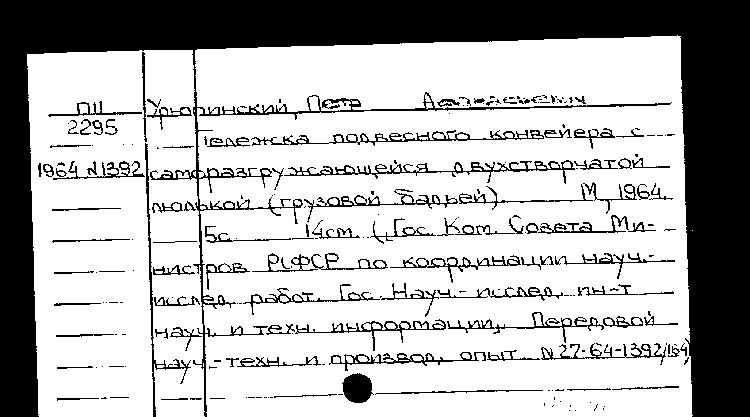 ПП Урюпинский, Петр Афанасьевич
2295
Тележка подвесного конвейера с
1964 N1392 саморазгружающейся двухстворчатой
люлькой (грузовой бадьей). М, 1964.
5с 14см. (Гос. Ком. Совета Ми-
нистров РСФСР по координации науч.-
исслед. работ. Гос. Науч.-исслед. ин-т
науч. и техн. информации. Передовой
науч.-техн. и производ. опыт N27-64-1392/164)